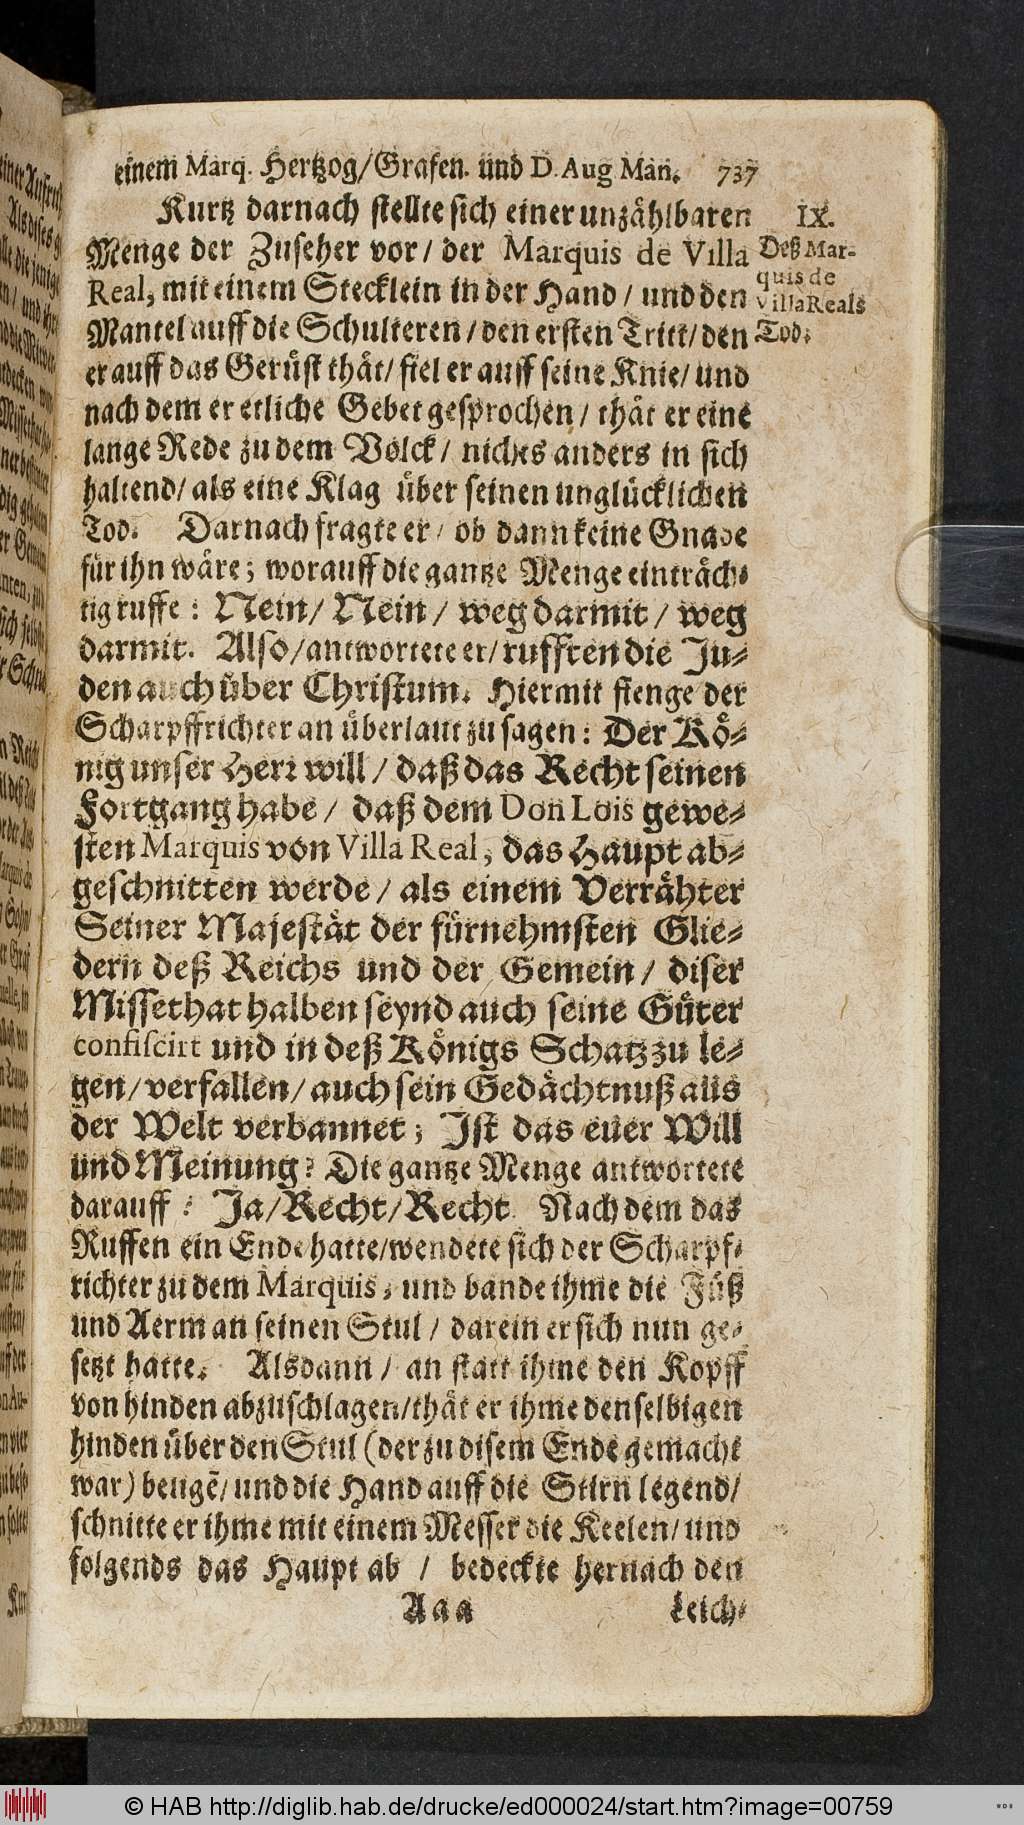 einem Marq. Hertzog/Grafen. und D. Aug Man. 737
Kurtz darnach stellte sich einer unzählbaren
Menge der Zuseher vor/ der Marquis de Villa
Real, mit einem Stecklein in der Hand/ und den
Mantel auff die Schulteren/den ersten Tritt/den
er auff das Gerüst thät/ fiel er auff seine Knie/ und
nach dem er etliche Gebet gesprochen/ thät er eine
lange Rede zu dem Volck/ nichts anders in sich
haltend/ als eine Klag über seinen unglücklichen
Tod. Darnach fragte er/ ob dann keine Gnade
für ihn wäre; worauff die gantze Menge einträch-
tig ruffe: Nein/ Nein/ weg darmit/ weg
darmit. Also/antwortete er/ rufften die Ju-
den auch über Christum. Hiermit fienge der
Scharpffrichter an überlaut zu sagen: Der Kö-
nig unser Herr will/ daß das Recht seinen
Fortgang habe/ daß dem Don Lois gewe-
sten Marquis von Villa Real, das Haupt ab-
geschnitten werde/ als einem Verrähter
Seiner Majestät der fürnehmsten Glie-
dern deß Reichs und der Gemein/ diser
Missethat halben seynd auch seine Güter
confiscirt und in deß Königs Schatz zu le-
gen/verfallen/auch sein Gedächtnuß aus
der Welt verbannet; Ist das euer Will
und Meinung? Die gantze Menge antwortete
darauff: Ja/Recht/Recht. Nach dem das
Ruffen ein Ende hatte/wendete sich der Scharpf-
richter zu dem Marquis, und bande ihme die Füß
und Aerm an seinen Stul/ darein er sich nun ge-
setzt hatte. Alsdann/ an statt ihme den Kopff
von hinden abzuschlagen/thät er ihme denselbigen
hinden über den Stul (der zu disem Ende gemacht
war) beugẽ/ und die Hand auff die Stirn legend/
schnitte er ihme mit einem Messer die Keelen/ und
folgends das Haupt ab/ bedeckte hernach den
Aaa Leich-
IX.
Deß Mar-
quis de
Villa Reals
Tod.
© HAB http://diglib.hab.de/drucke/ed000024/start.htm?image=00759